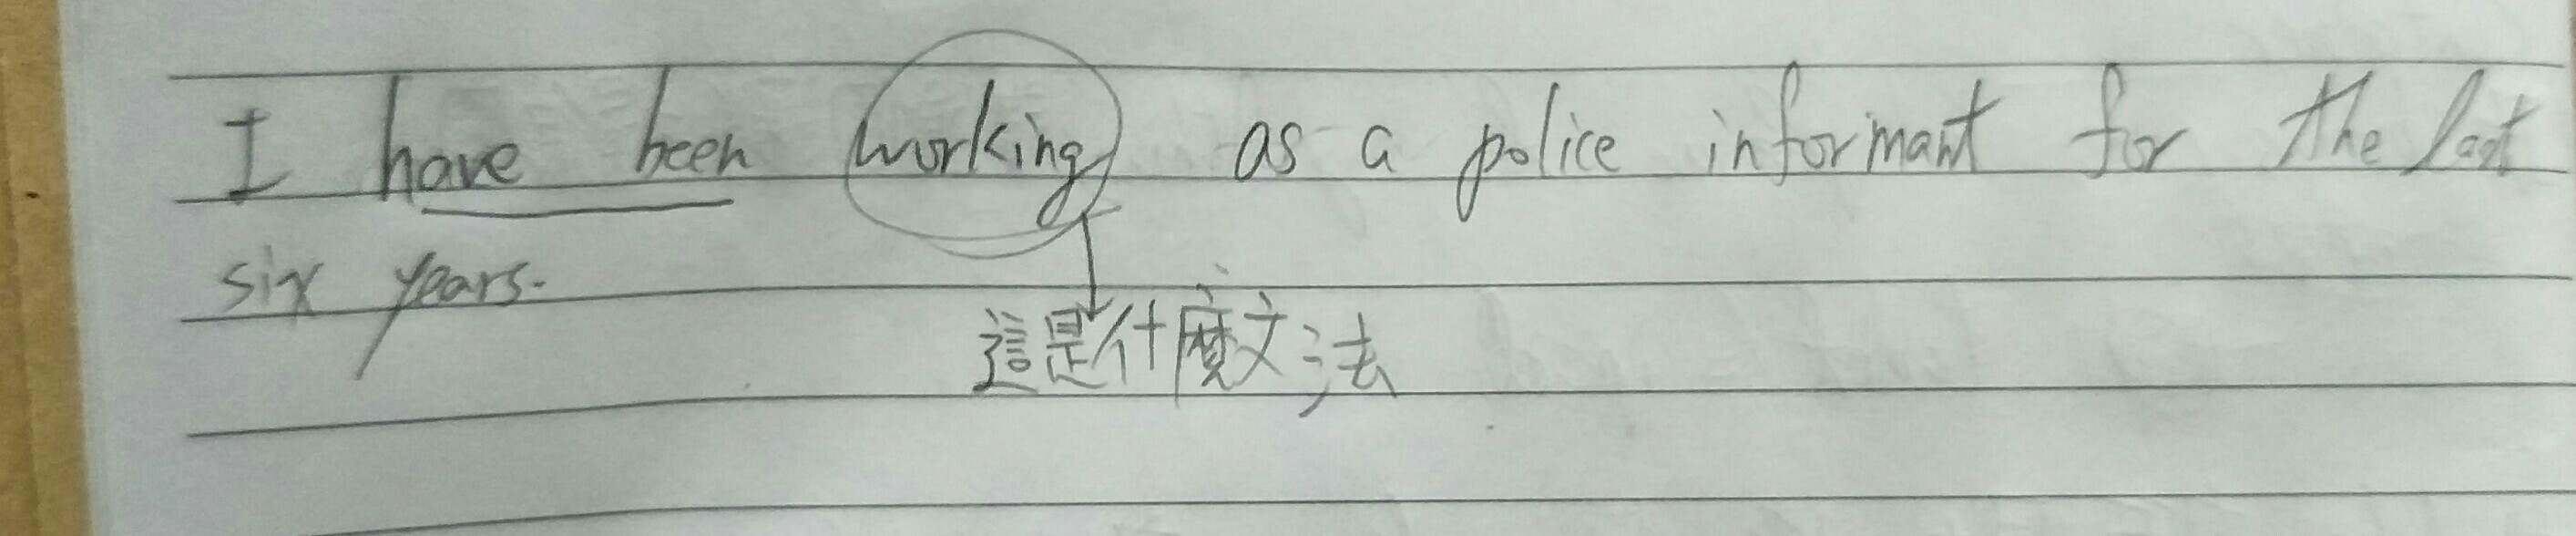 I have been working as a police informant for the last
six years.
這是什麼文法